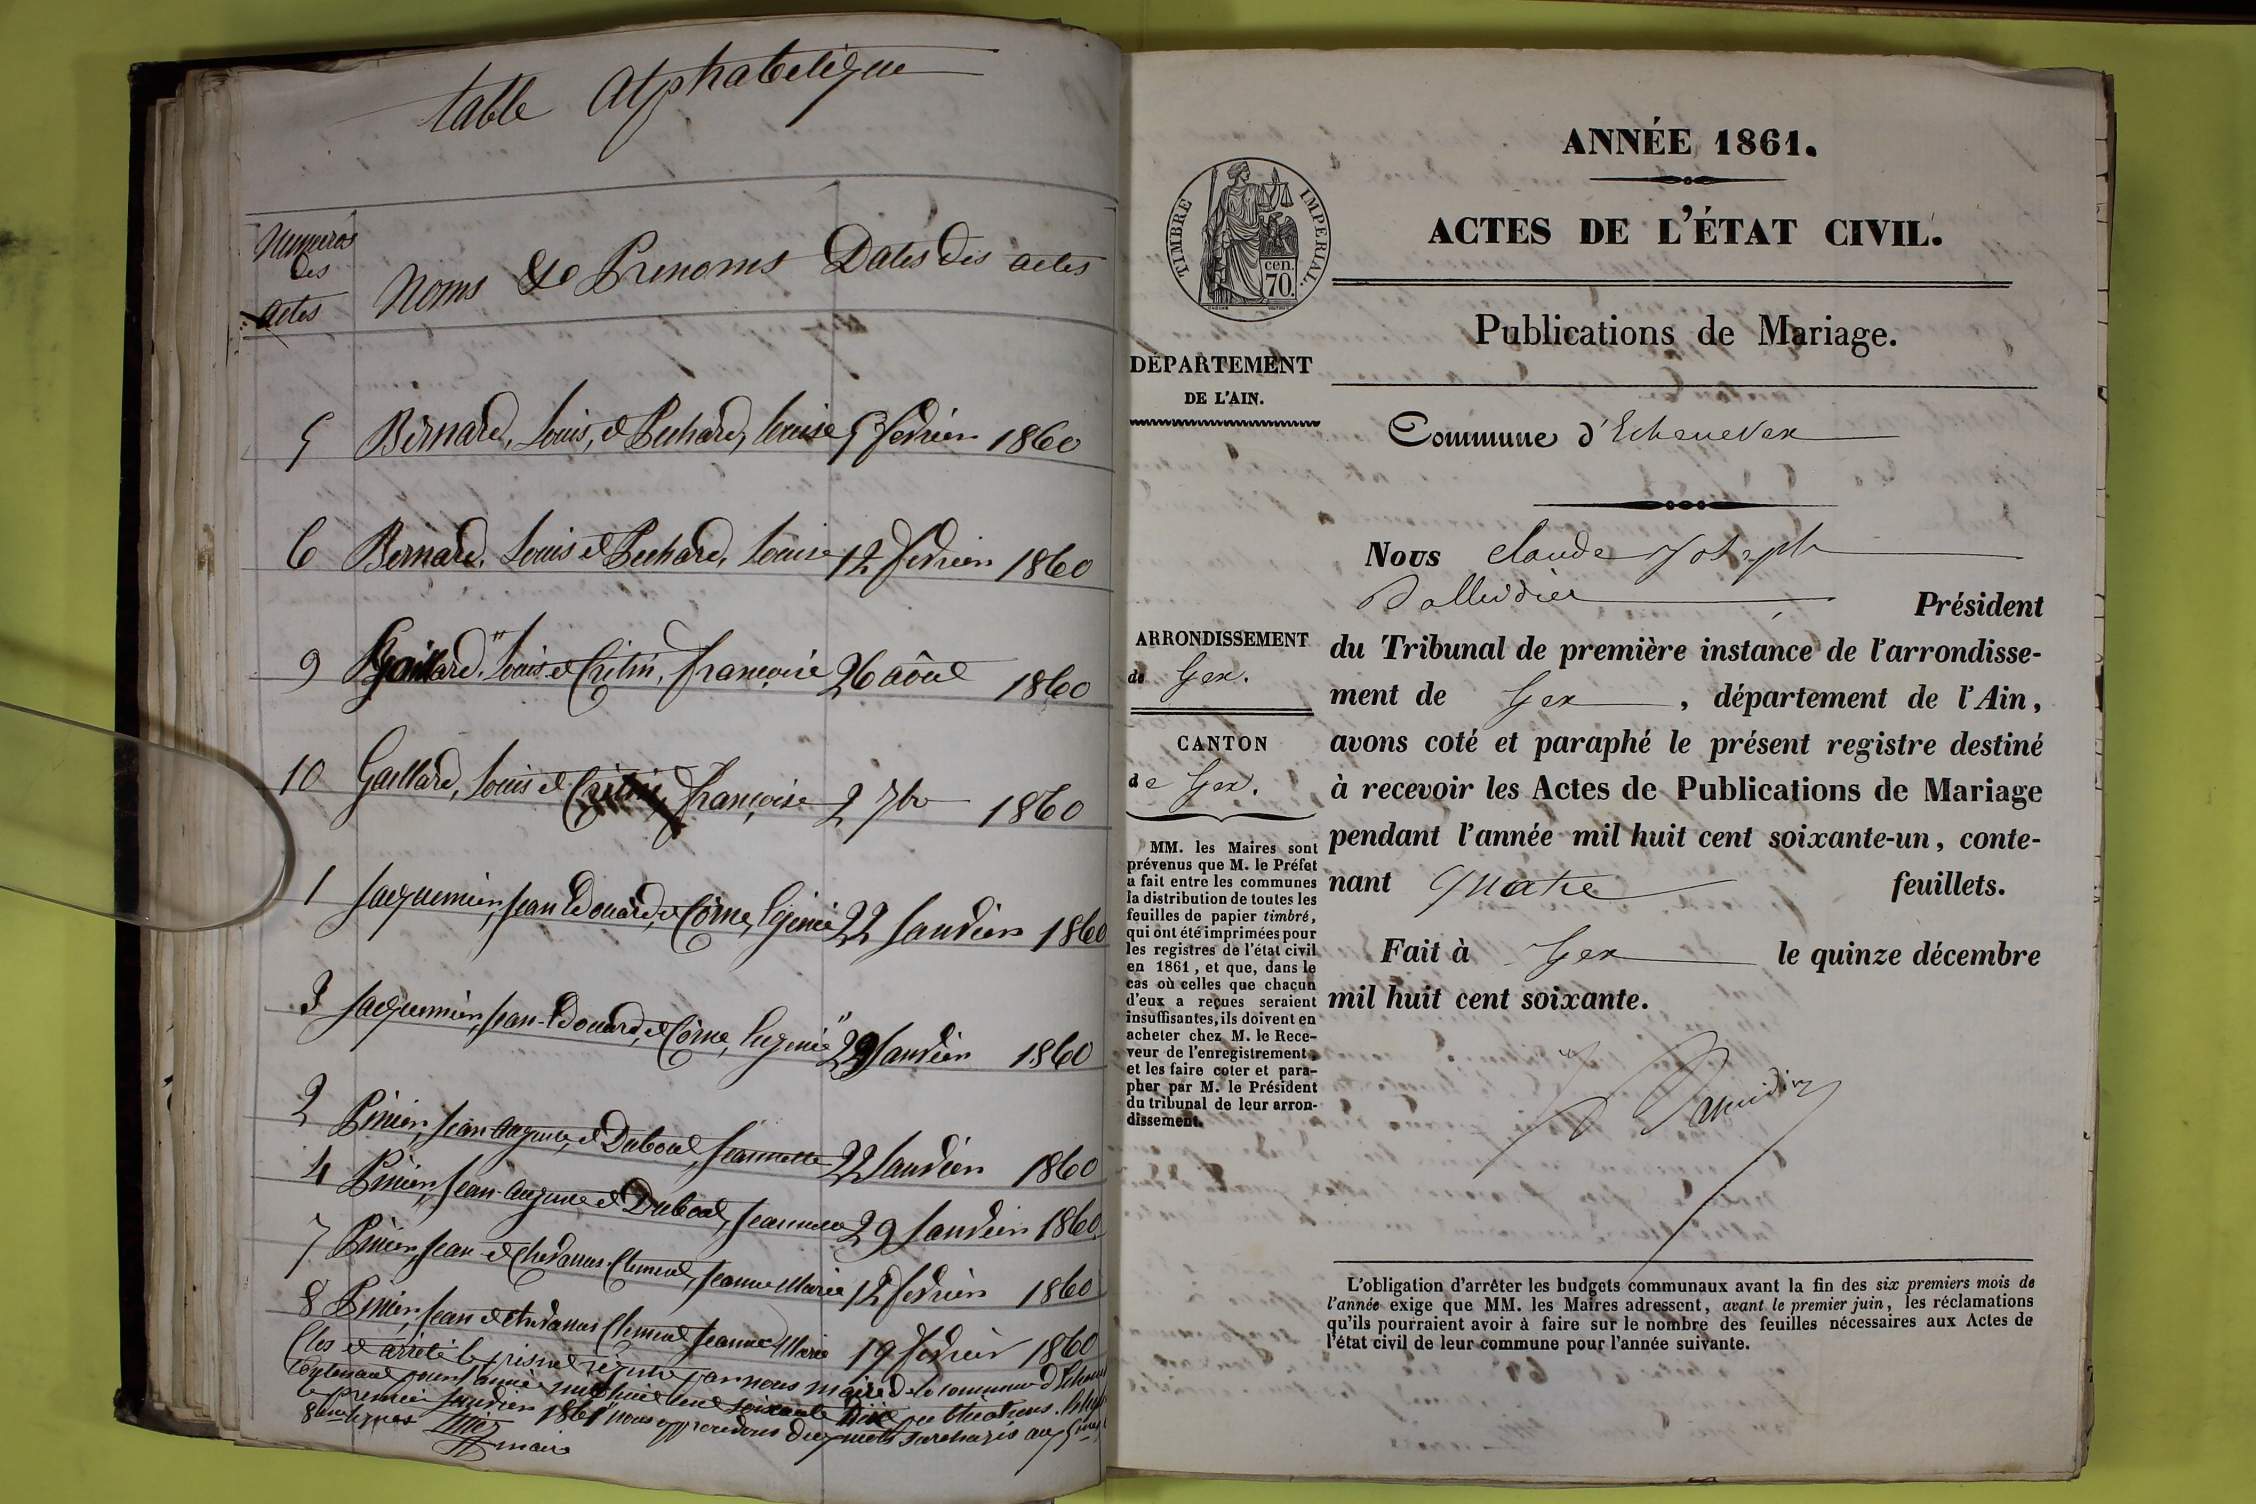 table alphabetique
Numeros
des
actes
Noms & Prenoms
Dates des actes
5 Bernard, Louis, et Pechard, louise 5 fevrier 1860
6 Bernard, Louis et Pechard, Louise 12 fevrier 1860
9 Gaillard, Louis et Cretin, françoise 26 août 1860
10 Gaillard, Louis et françoise 2 7bre 1860
1 Jacquemier, Jean Edouard, et Corne, Eugenie 22 Janvier 1860
3 Jacquemier, Jean-Edouard, et Corne, Eugenie 29 Janvier 1860
2 Jean auguste, et Dubout, Jeannette 22 Janvier 1860
4 Jean-auguste et Dubout, Jeannette 29 Janvier 1860
7 Jean et Clement, Jeanne Marie 12 fevrier 1860
8 Jean et Clement Jeanne Marie 19 fevrier 1860
Clos et arrêté le présent registre par nous maire de la commune
contenant pour l'année mil huit cent soixante dix publications.
le premier Janvier 1861 nous approuvons deux mots
8eme lignes
maire
ANNÉE 1861.
ACTES DE L'ÉTAT CIVIL.
TIMBRE IMPÉRIAL.
cen.
70.
Publications de Mariage.
DÉPARTEMENT
DE L'AIN.
Commune d'Echenevex
Nous Claude Joseph
Président
ARRONDISSEMENT
de Gex.
CANTON
de Gex.
du Tribunal de première instance de l'arrondisse-
ment de Gex, département de l'Ain,
avons coté et paraphé le présent registre destiné
à recevoir les Actes de Publications de Mariage
pendant l'année mil huit cent soixante-un, conte-
nant quatre feuillets.
Fait à Gex le quinze décembre
mil huit cent soixante.
MM. les Maires sont
prévenus que M. le Préfet
a fait entre les communes
la distribution de toutes les
feuilles de papier timbré,
qui ont été imprimées pour
les registres de l'état civil
en 1861, et que, dans le
cas où celles que chacun
d'eux a reçues seraient
insuffisantes, ils doivent en
acheter chez M. le Rece-
veur de l'enregistrement,
et les faire coter et para-
pher par M. le Président
du tribunal de leur arron-
dissement.
L'obligation d'arrêter les budgets communaux avant la fin des six premiers mois de
l'année exige que MM. les Maires adressent, avant le premier juin, les réclamations
qu'ils pourraient avoir à faire sur le nombre des feuilles nécessaires aux Actes de
l'état civil de leur commune pour l'année suivante.